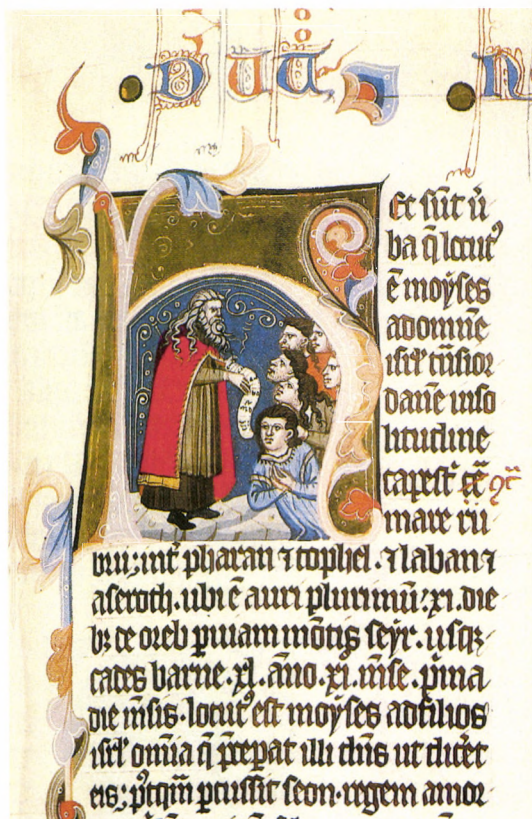 DUT N
Et sūt ū
ba q̄ locut᾽
ē moẏses
ad omnē
isrl̄ trāsior
danē in so
litudine
capest᷑ ꝯᷓ
mare ru
brū; int᷑ pharan ⁊ tophel. ⁊ laban ⁊
aseroth. ubi ē auri plurimū; xi. die
bꝫ de oreb p uiam mōtis seẏr. usqꝫ
cades barne. xl. āno. xi. mēse. p̄ma
die mēsis. locut᾽ est moẏses ad filios
isrl̄ om̄ia q̄ p̄cepat illi dn̄s ut dicēt
eis; p᾽tqm̄ pcussit seon. regem amor